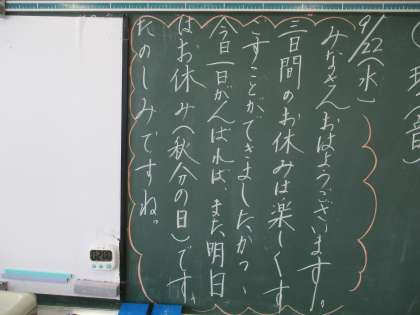 9/22(水)
みなさんおはようございます。
三日間のお休みは楽しくす
ごすことができましたかっ、
今日一日がんばれば、また明日
はお休み(秋分の日)です。
たのしみですね。